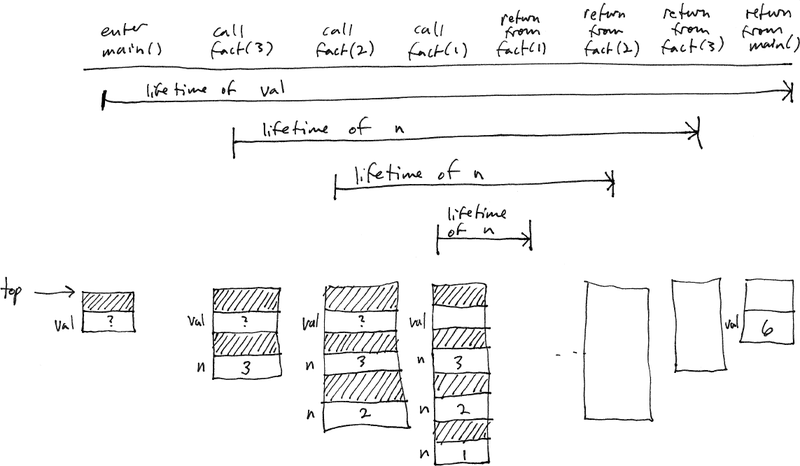 enter
main()
call
fact(3)
call
fact(2)
call
fact(1)
return
from
fact(1)
return
from
fact(2)
return
from
fact(3)
return
from
main()
lifetime of val
lifetime of n
lifetime of n
lifetime
of n
top
val ?
val ?
n 3
val ?
n 3
n 2
val
n 3
n 2
n 1
val 6